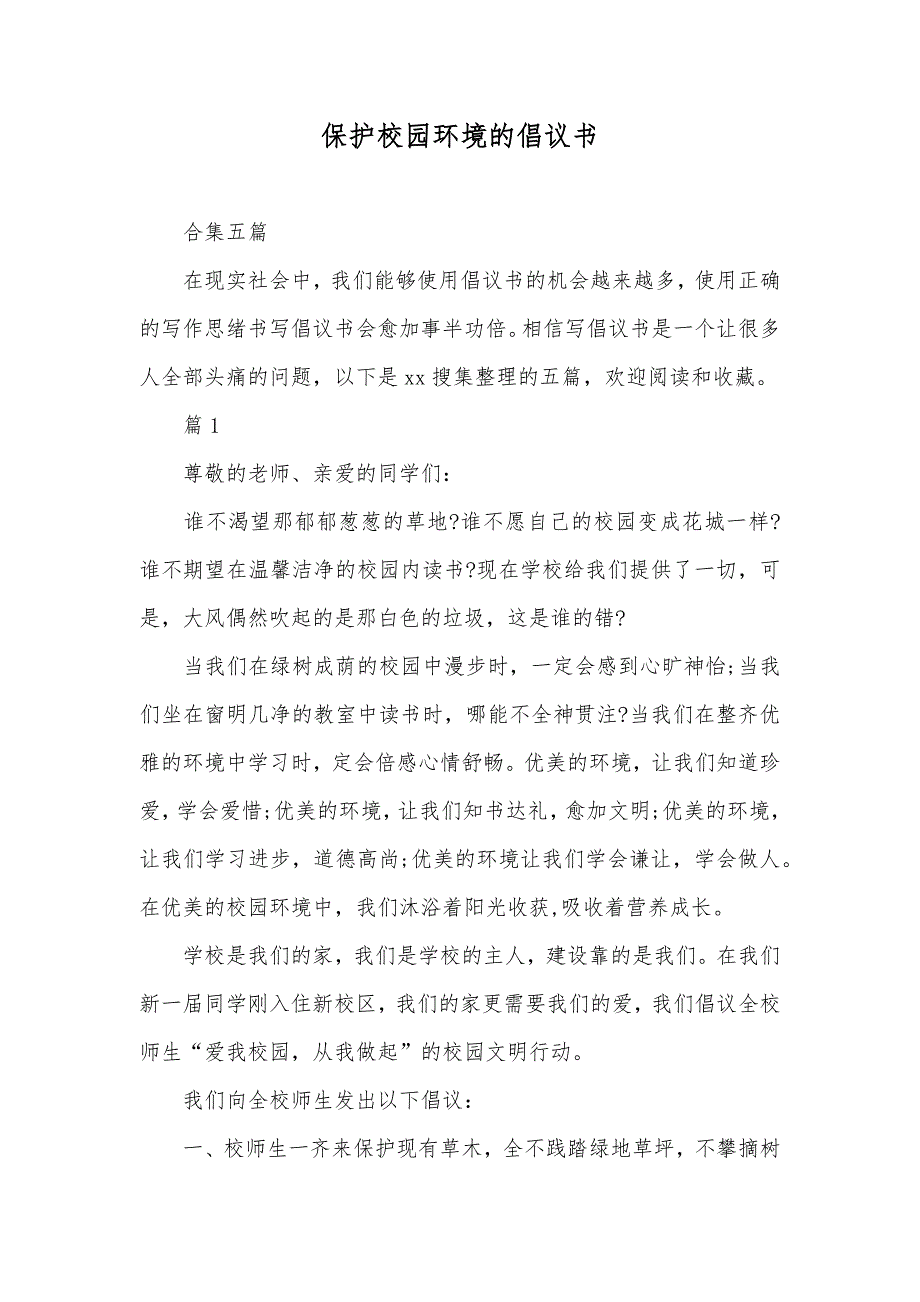 保护校园环境的倡议书
合集五篇
在现实社会中，我们能够使用倡议书的机会越来越多，使用正确
的写作思绪书写倡议书会愈加事半功倍。相信写倡议书是一个让很多
人全部头痛的问题，以下是 xx 搜集整理的五篇，欢迎阅读和收藏。
篇 1
尊敬的老师、亲爱的同学们：
谁不渴望那郁郁葱葱的草地?谁不愿自己的校园变成花城一样?
谁不期望在温馨洁净的校园内读书?现在学校给我们提供了一切，可
是，大风偶然吹起的是那白色的垃圾，这是谁的错?
当我们在绿树成荫的校园中漫步时，一定会感到心旷神怡;当我
们坐在窗明几净的教室中读书时，哪能不全神贯注?当我们在整齐优
雅的环境中学习时，定会倍感心情舒畅。优美的环境，让我们知道珍
爱，学会爱惜;优美的环境，让我们知书达礼，愈加文明;优美的环境，
让我们学习进步，道德高尚;优美的环境让我们学会谦让，学会做人。
在优美的校园环境中，我们沐浴着阳光收获,吸收着营养成长。
学校是我们的家，我们是学校的主人，建设靠的是我们。在我们
新一届同学刚入住新校区，我们的家更需要我们的爱，我们倡议全校
师生“爱我校园，从我做起”的校园文明行动。
我们向全校师生发出以下倡议：
一、校师生一齐来保护现有草木，全不践踏绿地草坪，不攀摘树